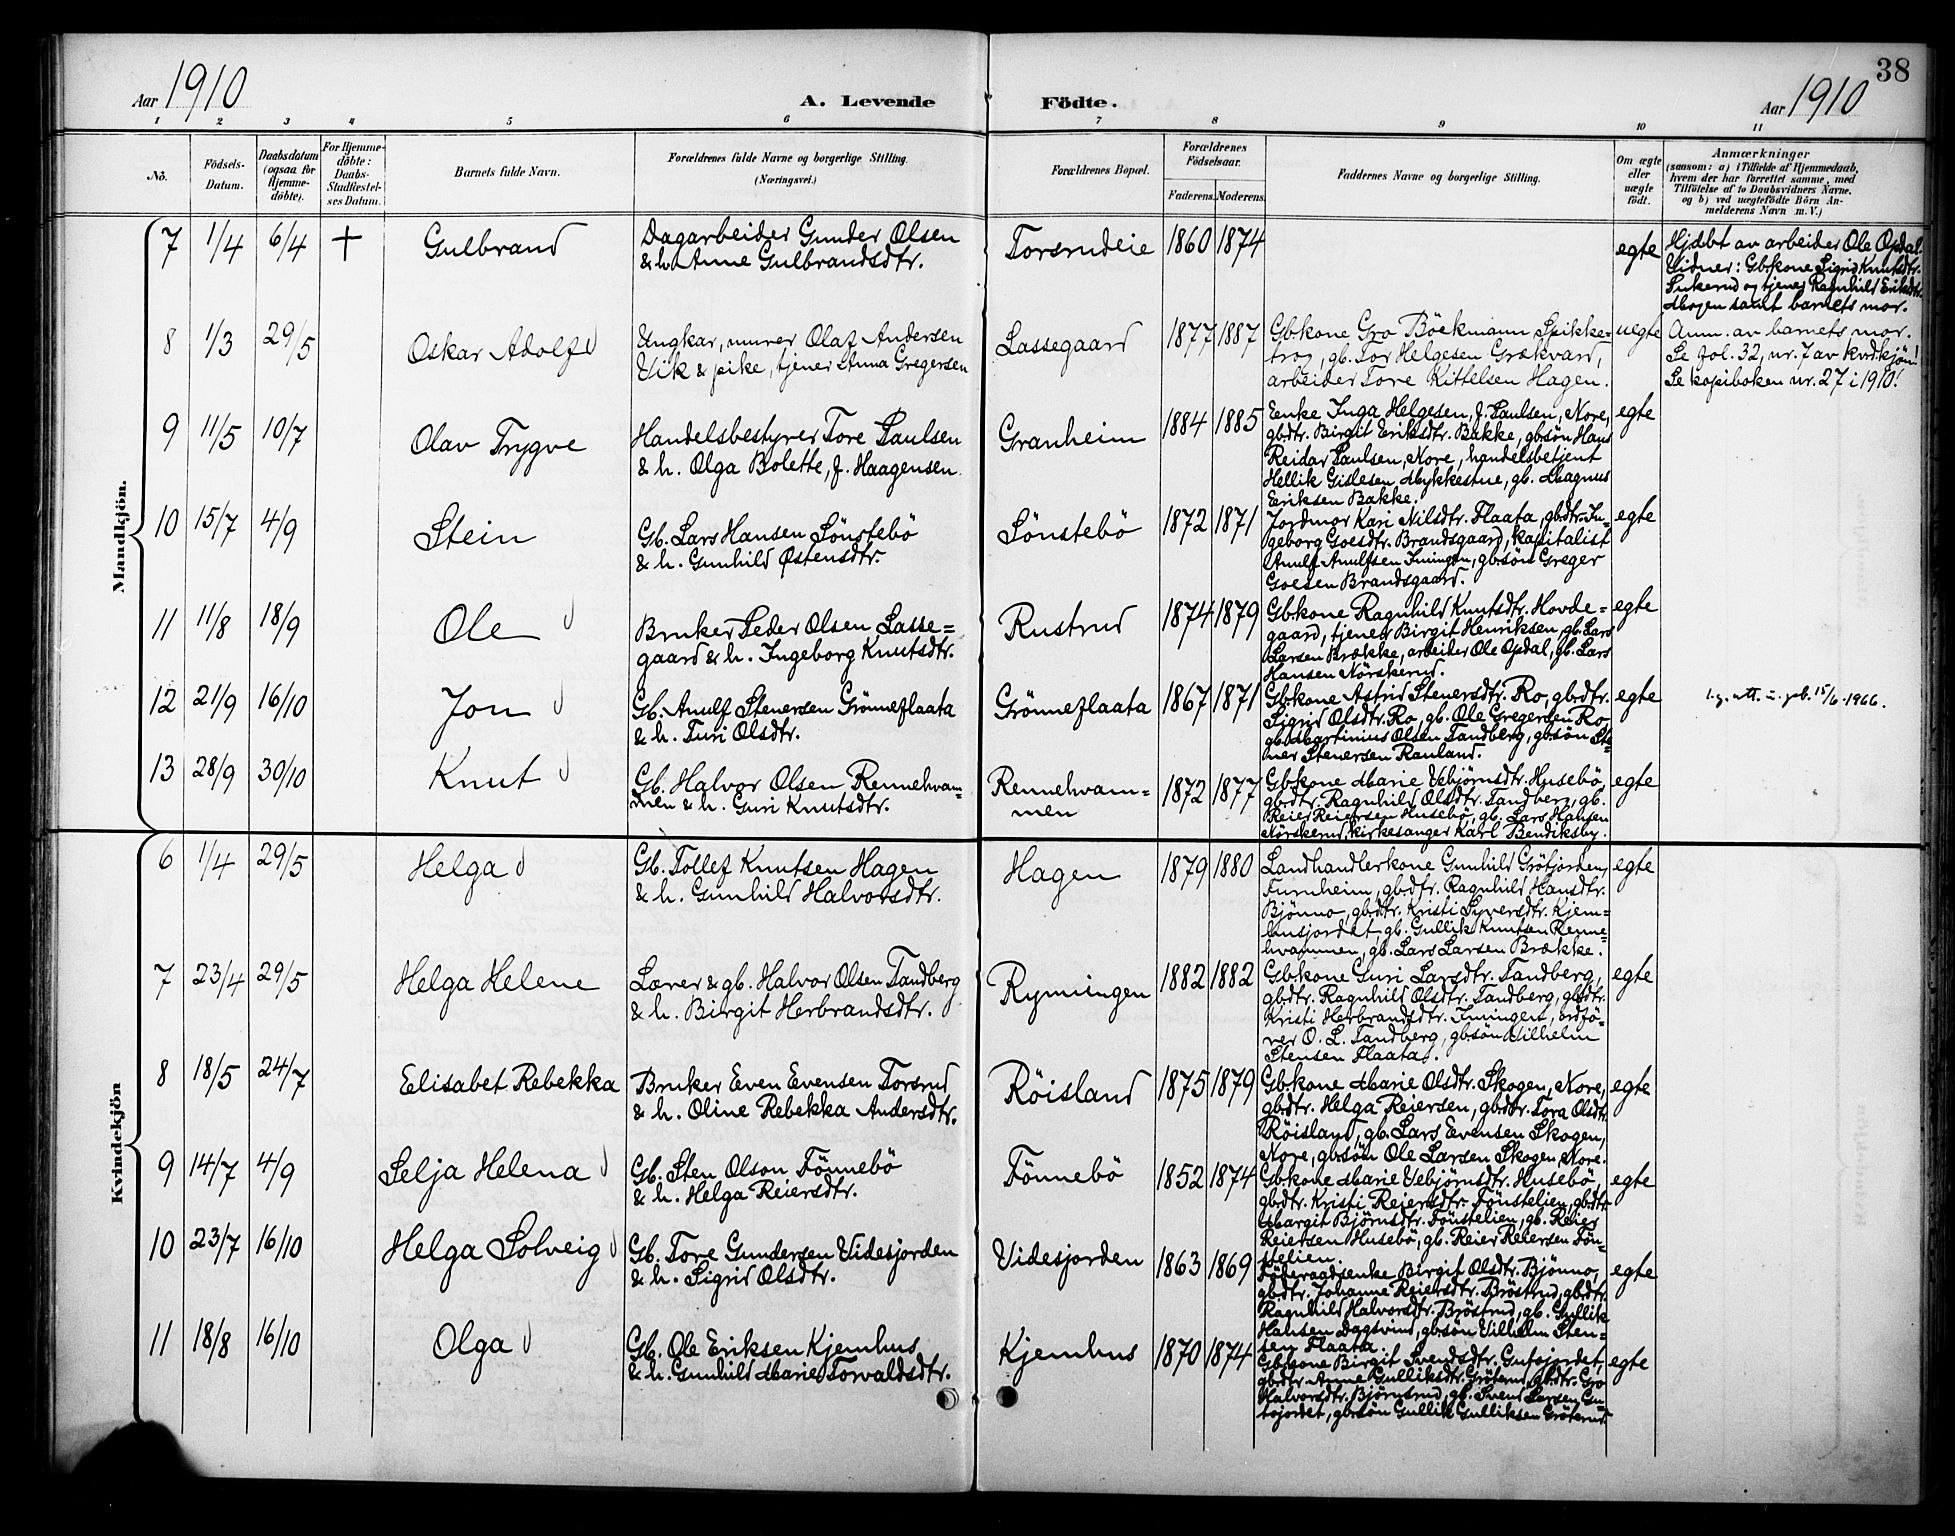 38
Aar 1910
A. Levende
Födte.
Aar 1910
1 2 3 4 5 6 7 8 9 10 11
No.
Födsels-
Datum.
Daabsdatum
(ogsaa for
Hjemme-
döbte).
For Hjemme-
döbte:
Daabs-
Stadfæstel-
ses Datum.
Barnets fulde Navn.
Forældrenes fulde Navne og borgerlige Stilling.
(Næringsvei.)
Forældrenes Bopæl.
Forældrenes
Födselsaar.
Faderens.
Moderens.
Faddernes Navne og borgerlige Stilling.
Om ægte
eller
uægte
födt.
Anmærkninger
(saasom: a) i Tilfælde af Hjemmedaab,
hvem der har forrettet samme, med
Tilföielse af to Daabsvidners Navne.
og b) ved uægtefödte Börn An-
melderens Navn m. V.)
Mandkjön.
7 1/4 6/4 † Gulbrand
Dagarbeider Gunder Olsen
& h. Anne Gulbrandsdtr.
Torsrudeie 1860 1874
egte
Hjdöbt av arbeider Ole Opdal.
Vidner: Gbkone Sigrid Knutsdtr.
og tjener Ragnhild Eriksdtr.
Mogen samt barnets mor.
8 1/3 29/5 Oskar Adolf
Ungkar, murer Olaf Andersen
Vik & pike, tjener Anna Gregersen
Lassegaard 1877 1887
Gbkone Gro Böckmann Spikke-
trog, gb. Tor Helgesen Grækvard,
arbeider Tore Kittelsen Hagen.
uegte
Anm. av barnets mor.
Se fol. 32, nr. 7 av kvdkjön!
Se kopiboken nr. 27 i 1910!
9 11/5 10/7 Olav Trygve
Handelsbestyrer Tore Paulsen
& h. Olga Bolette, f. Haagensen.
Granheim 1884 1885
Enke Inga Helgesen, f. Paulsen, Nore,
gbdtr. Birgit Eriksdtr. Bakke, gbsön Hans
Reidar Paulsen, Nore, handelsbetjent
Hellik Gislesen Mykkestue, gb. Magnus
Eriksen Bakke.
egte
10 15/7 4/9 Stein
Gb. Lars Hansen Sönstebö
& h. Gunhild Østensdtr.
Sönstebö 1872 1871
Jordmor Kari Nilsdtr. Flaata, gbdtr. In-
geborg Goesdtr. Brandsgaard, kapitalist
Arnulf Arnulfsen Imingen, gbsön Greger
Goesen Brandsgaard.
egte
11 11/8 18/9 Ole
Bruker Peder Olsen Lasse=
gaard & h. Ingeborg Knutsdtr.
Rustrud 1874 1879
Gbkone Ragnhild Knutsdtr. Hovde=
gaard, tjener Birgit Henriksen, gb. Lars
Larsen Brække, arbeider Ole Opdal, gb. Lars
Hansen Nörskerud.
egte
12 21/9 16/10 Jon
Gb. Arnulf Stenersen Grönneflaata
& h. Turi Olsdtr.
Grönneflaata 1867 1871
Gbkone Astrid Stenersdtr. Ro, gbdtr.
Sigrid Olsdtr. Ro, gb. Ole Gregersen Ro,
gb. Martinius Olsen Tandberg, gbsön Ste-
ner Stenersen Rauland.
egte
15/6-1966.
13 28/9 30/10 Knut
Gb. Halvor Olsen Rennehvam=
men & h. Guri Knutsdtr.
Rennehvam=
men 1872 1877
Gbkone Marie Vebjörnsdtr. Husebö,
gbdtr. Ragnhild Olsdtr. Tandberg, gb.
Reier Reiersen Husebö, gb. Lars Hansen
Nörskerud, kirkesanger Karl Bendiksby.
egte
Kvindekjön
6 1/4 29/5 Helga
Gb. Tollef Knutsen Hagen
& h. Gunhild Halvorsdtr.
Hagen 1879 1880
Landhandlerkone Gunhild Gröfjorden,
Furnheim, gbdtr. Ragnhild Hansdtr.
Bjönno, gbdtr. Kristi Syversdtr. Kjem=
husjordet, gb. Gullik Knutsen Renne=
hvammen, gb. Lars Larsen Brække.
egte
7 23/4 29/5 Helga Helene
Lærer & gb. Halvor Olsen Tandberg
& h. Birgit Herbrandsdtr.
Rymiingen 1882 1882
Gbkone Guri Larsdtr. Tandberg,
gbdtr. Ragnhild Olsdtr. Tandberg, gbdtr.
Kristi Herbrandsdtr. Imingen, ordfö=
rer O. L. Tandberg, gbsön Vilhelm
Stensen Flaata.
egte
8 18/5 24/7 Elisabet Rebekka
Bruker Even Evensen Torsrud
& h. Oline Rebekka Andersdtr.
Röisland 1875 1879
Gbkone Marie Olsdtr. Skogen, Nore,
gbdtr. Helga Reiersen, gbdtr. Tora Olsdtr.
Röisland, gb. Lars Evensen Skogen,
Nore, gbsön Ole Larsen Skogen, Nore.
egte
9 14/7 4/9 Selja Helena
Gb. Sten Olson Tönnebö
& h. Helga Reiersdtr.
Tönnebö 1852 1874
Gbkone Marie Vebjörnsdtr. Husebö,
gbdtr. Kristi Reiersdtr. Fönstelien, gbdtr.
Margit Björnsdtr. Fönstelien, gb. Reier
Reiersen Husebö, gb. Reier Reiersen Fön=
stelien.
egte
10 23/7 16/10 Helga Solveig
Gb. Tore Gundersen Videsjorden
& h. Sigrid Olsdtr.
Videsjorden 1863 1869
Föderaadsenke Birgit Olsdtr. Bjönno,
gbdtr. Johanne Reiersdtr. Bröstrud, gbdtr.
Ragnhild Halvorsdtr. Bröstrud, gb. Gullik
Hansen Dagsvind, gbsön Vilhelm Sten=
sen Flaata.
egte
11 18/8 16/10 Olga
Gb. Ole Eriksen Kjemhus
& h. Gunhild Marie Torvaldsdtr.
Kjemhus 1870 1874
Gbkone Birgit Svendsdtr. Gutujordet,
gbdtr. Anne Gulliksdtr. Gröterud, gbdtr. Gro
Halvorsdtr. Björnsrud, gb. Svend Larsen Gu=
tujordet, gbsön Gullik Gulliksen Gröterud
egte